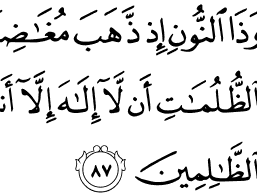 وَذَا ٱلنُّونِ إِذ ذَّهَبَ مُغَـٰضِ
ٱلظُّلُمَـٰتِ أَن لَّآ إِلَـٰهَ إِلَّآ أَنـ
ٱلظَّـٰلِمِينَ ٨٧